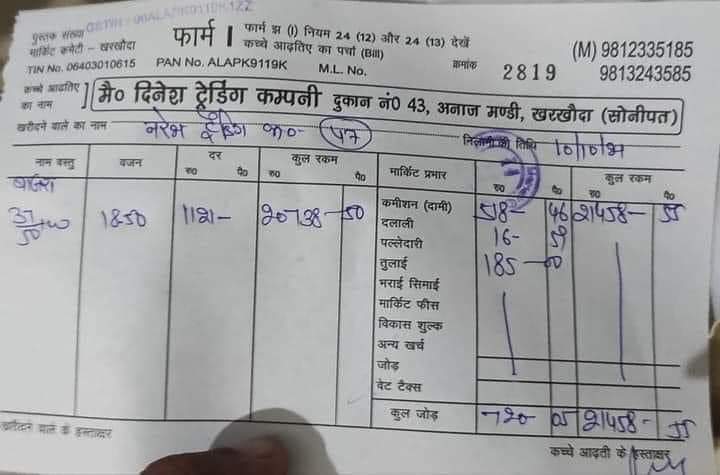 पुस्तक संख्या
मार्किट कमेटी - खरखौदा
TIN No. 06403010615
फार्म I
फार्म झ (I) नियम 24 (12) और 24 (13) देखें
कच्चे आढ़तिए का पर्चा (Bill)
PAN No. ALAPK9119K
M.L. No.
क्रमांक 2819
(M) 9812335185
9813243585
कच्चे आढ़तिए का नाम
मै० दिनेश ट्रेडिंग कम्पनी दुकान नं0 43, अनाज मण्डी, खरखौदा (सोनीपत)
खरीदने वाले का नाम नरेश ट्रेडिंग क०- 47
निलामी की तिथि 10/10/21
नाम वस्तु वजन दर रु० पै० कुल रकम रु० पै० मार्किट प्रभार रु० पै० कुल रकम रु० पै०
बाजरा
37/50 1850 1121- 20738-50 कमीशन (दामी) 518-46 21458-55
दलाली 16-59
पल्लेदारी 185-00
तुलाई
भराई सिमाई
मार्किट फीस
विकास शुल्क
अन्य खर्च
जोड़
वेट टैक्स
कुल जोड़ 720-05 21458-55
खरीदने वाले के हस्ताक्षर
कच्चे आढ़ती के हस्ताक्षर